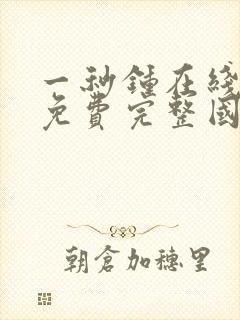 一秒鍾在綫
免費完整國
朝倉加穗里